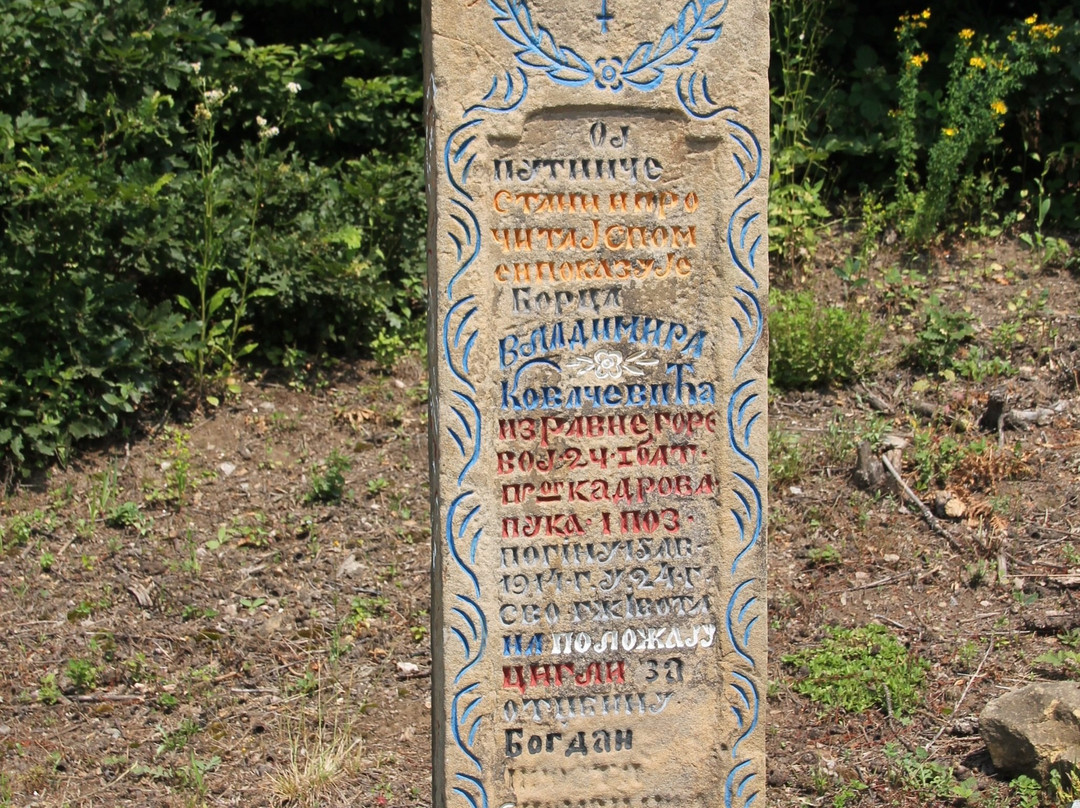 Ој
путниче
стани и про
читај спом
ен показује
Борца
Владимира
Ковачевића
из равне горе
вој. 24. I болт.
пог кадрова
пука. I поз.
погину 15 ав.
1914. г. у 24. г.
свог живота
на положају
цигли за
отџбину
Богдан